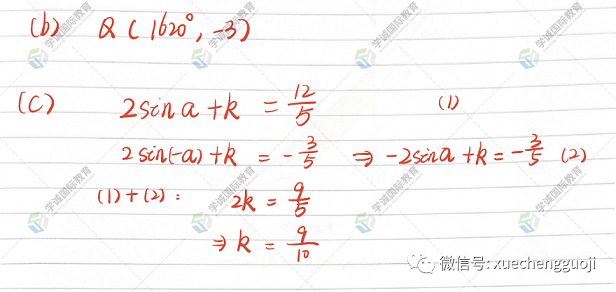 (b) Q ( 1620°, -3)
(c) 2 sin a + k = 12/5 (1)
2 sin(-a) + k = - 3/5 ⇒ -2 sin a + k = - 3/5 (2)
(1) + (2) : 2k = 9/5
⇒ k = 9/10
微信号: xuechengguoji
学诚国际教育
学诚国际教育
学诚国际教育
学诚国际教育
学诚国际教育
学诚国际教育
学诚国际教育
学诚国际教育
学诚国际教育